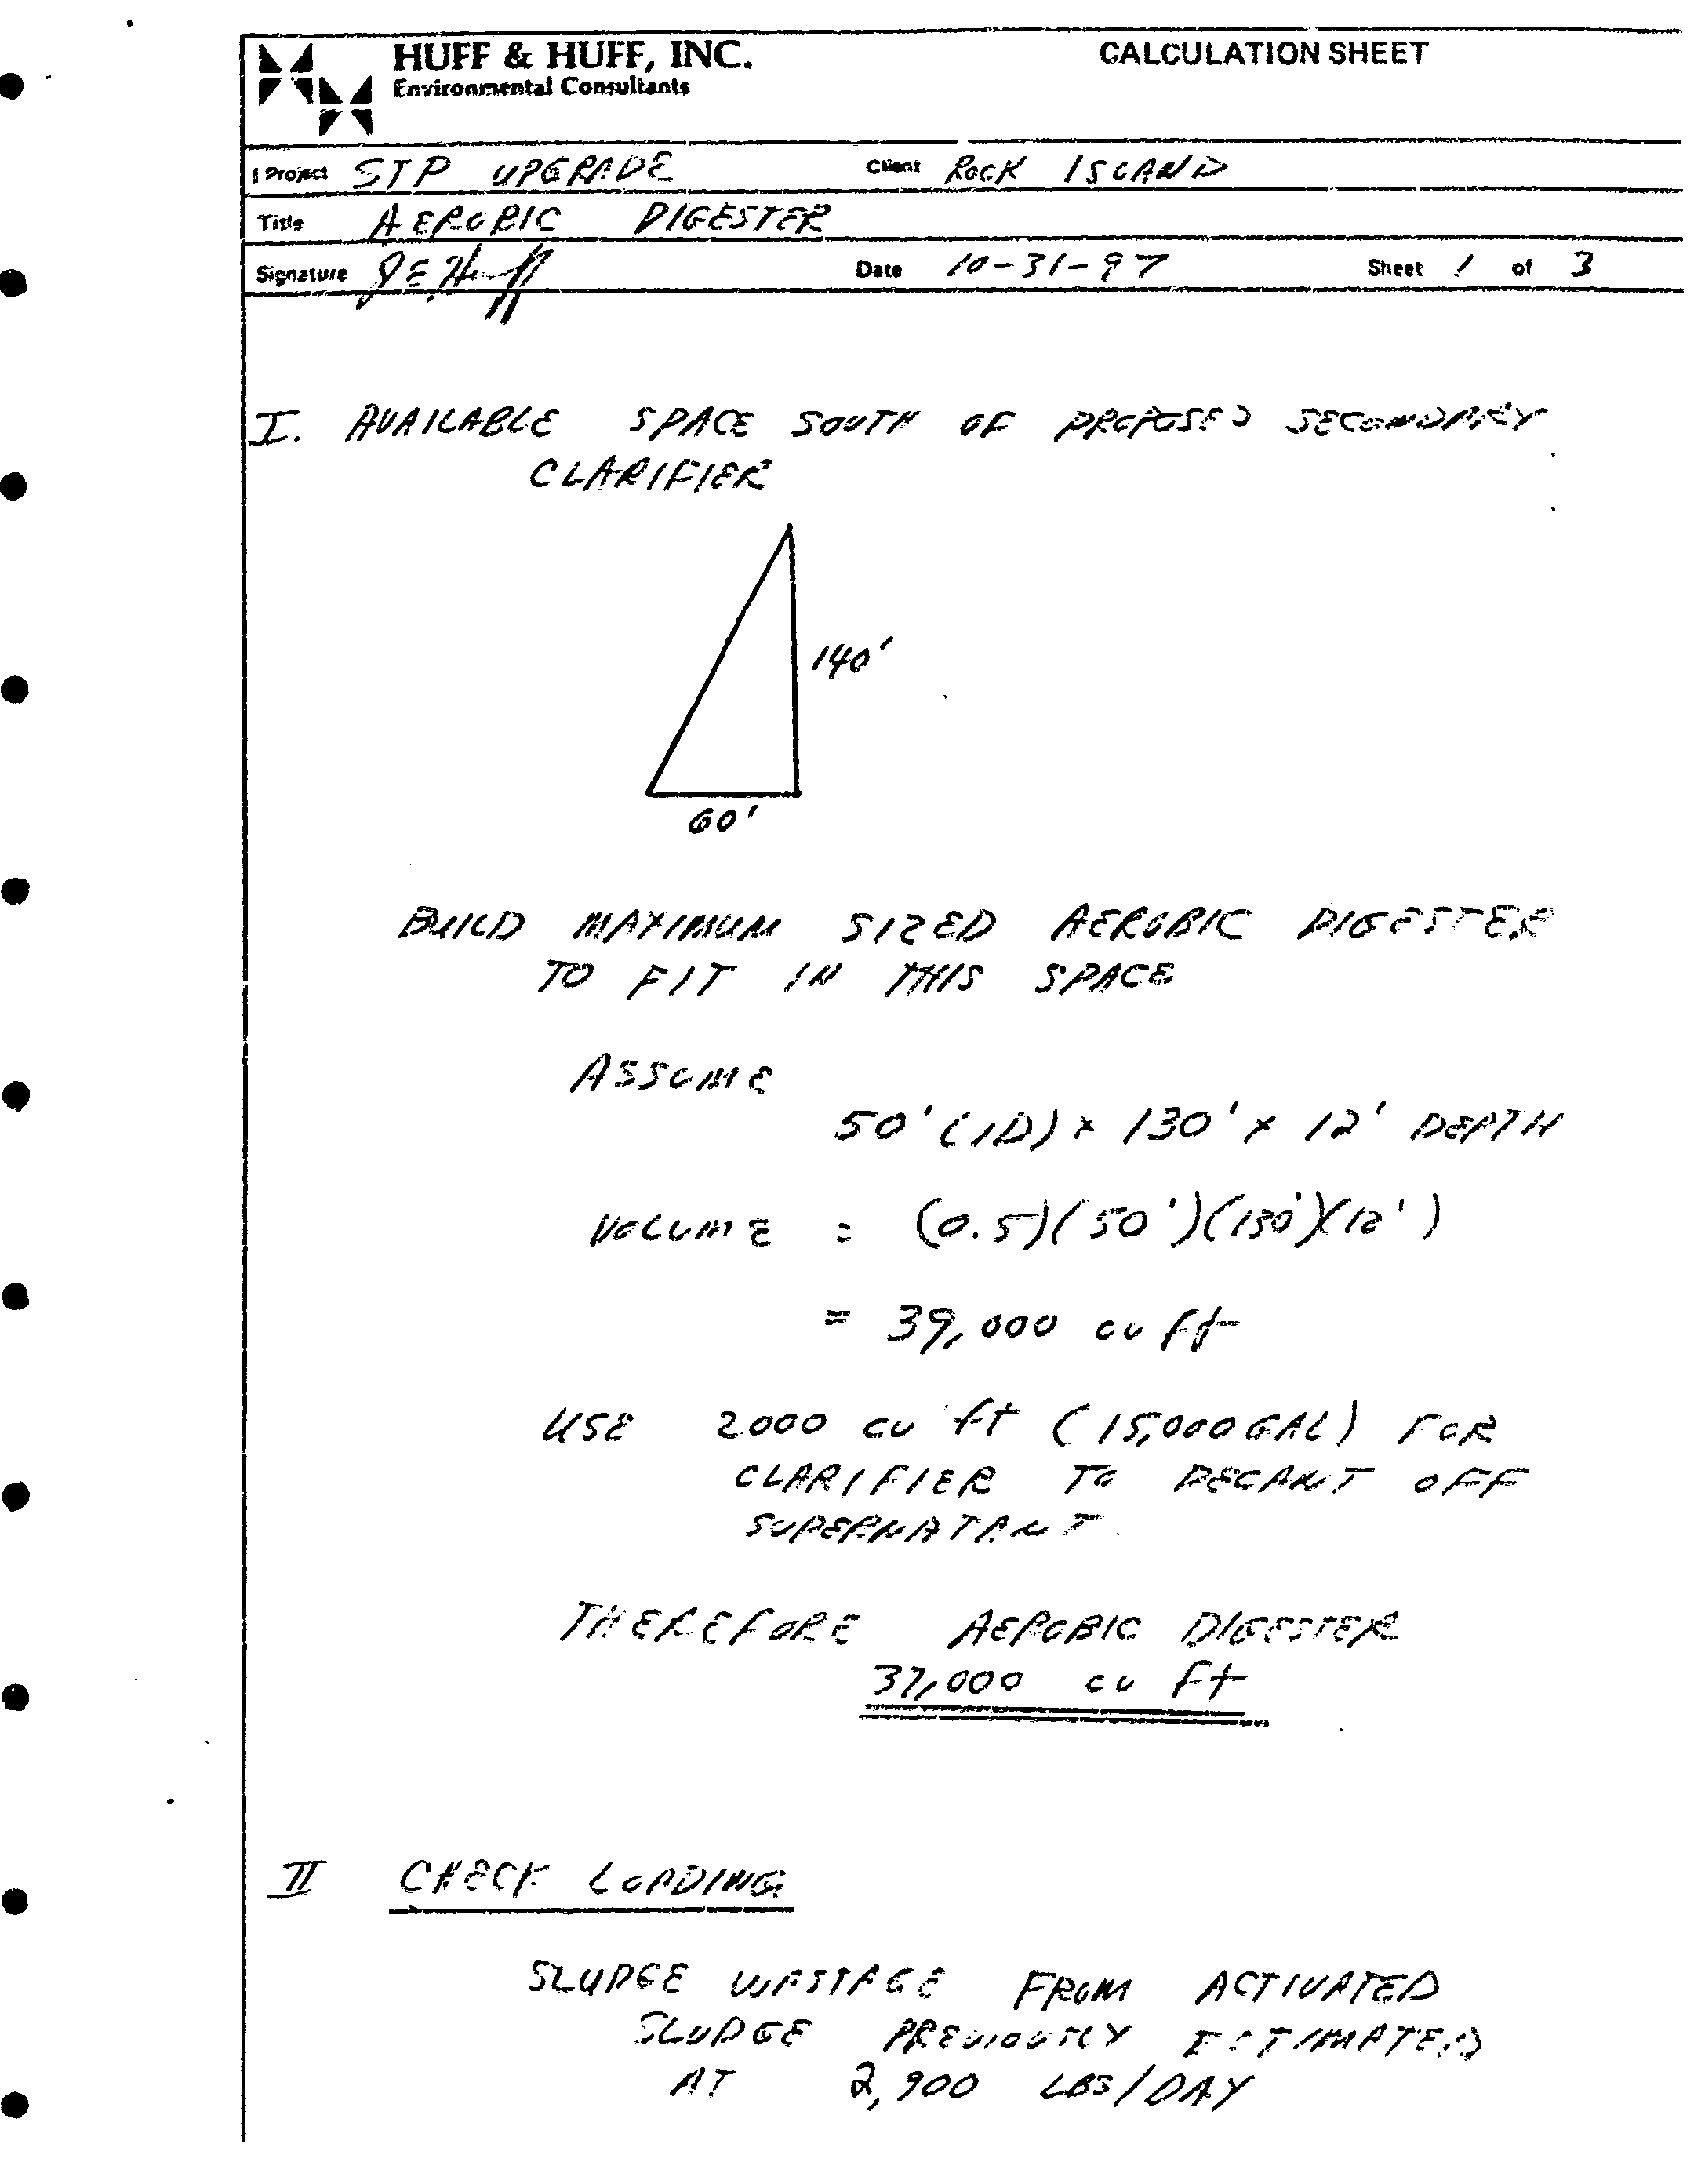 HUFF & HUFF, INC.
Environmental Consultants
CALCULATION SHEET
Project STP UPGRADE Client ROCK ISLAND
Title AEROBIC DIGESTER
Signature JEHuff Date 10-31-97 Sheet 1 of 3
I. AVAILABLE SPACE SOUTH OF PROPOSED SECONDARY
CLARIFIER
140'
60'
BUILD MAXIMUM SIZED AEROBIC DIGESTER
TO FIT IN THIS SPACE
ASSUME
50'(ID) x 130' x 12' DEPTH
VOLUME = (0.5)(50')(130')(12')
= 39,000 cu ft
USE 2000 cu ft (15,000 GAL) FOR
CLARIFIER TO DECANT OFF
SUPERNATANT.
THEREFORE AEROBIC DIGESTER
37,000 cu ft
II CHECK LOADING
SLUDGE WASTAGE FROM ACTIVATED
SLUDGE PREVIOUSLY ESTIMATED
AT 2,900 LBS/DAY